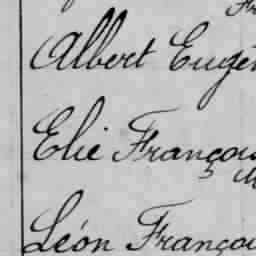 Albert Eugèn
Elie Françoi
Léon Françoi